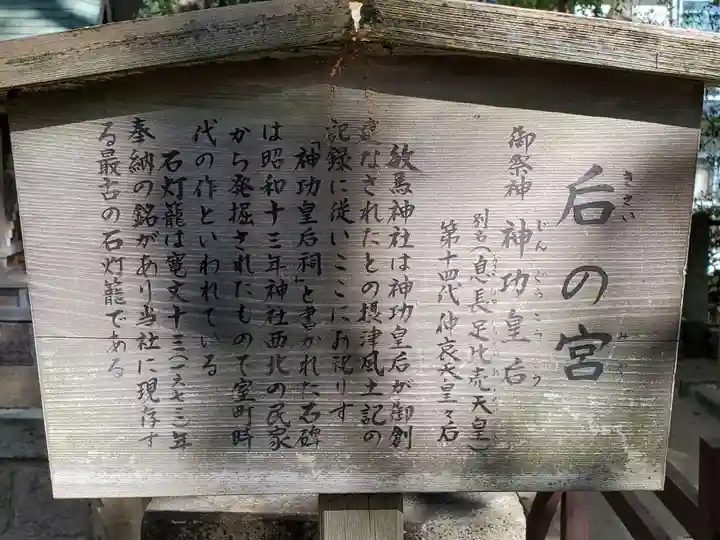 后の宮
きさい みや
御祭神 神功皇后
じんぐうこうごう
別名(息長足比売天皇)
第十四代仲哀天皇々后
敏馬神社は神功皇后が御創
建なされたとの摂津風土記の
記録に従いここにお祀りす
「神功皇后祠」と書かれた石碑
は昭和十三年神社西北の民家
から発掘されたもので室町時
代の作といわれている
石灯籠は寛文十三(一六七三)年
奉納の銘があり当社に現存す
る最古の石灯籠である